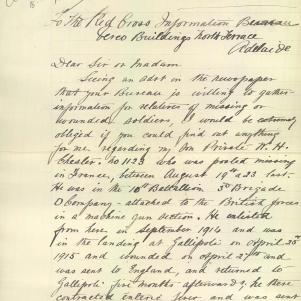 To the Red Cross Information Bureau
Verco Buildings North Terrace
Adelaide
Dear Sir or Madam
Seeing an advt in the newspaper
that your Bureau is willing to gather
information for relatives of missing or
wounded soldiers, I would be extremely
obliged if you could find out anything
for me regarding my son Private W. H.
Chesler. No 1123 who was posted missing
in France, between August 19th & 23 last.
He was in the 10th Battalion 3rd Brigade
D Company - attached to the British forces
in a machine gun section. He enlisted
from here in September 1914 and was
in the landing at Gallipoli on April 25th
1915 and wounded on April 27th and
was sent to England, and returned to
Gallipoli five months afterwards; he there
contracted enteric fever and was sent